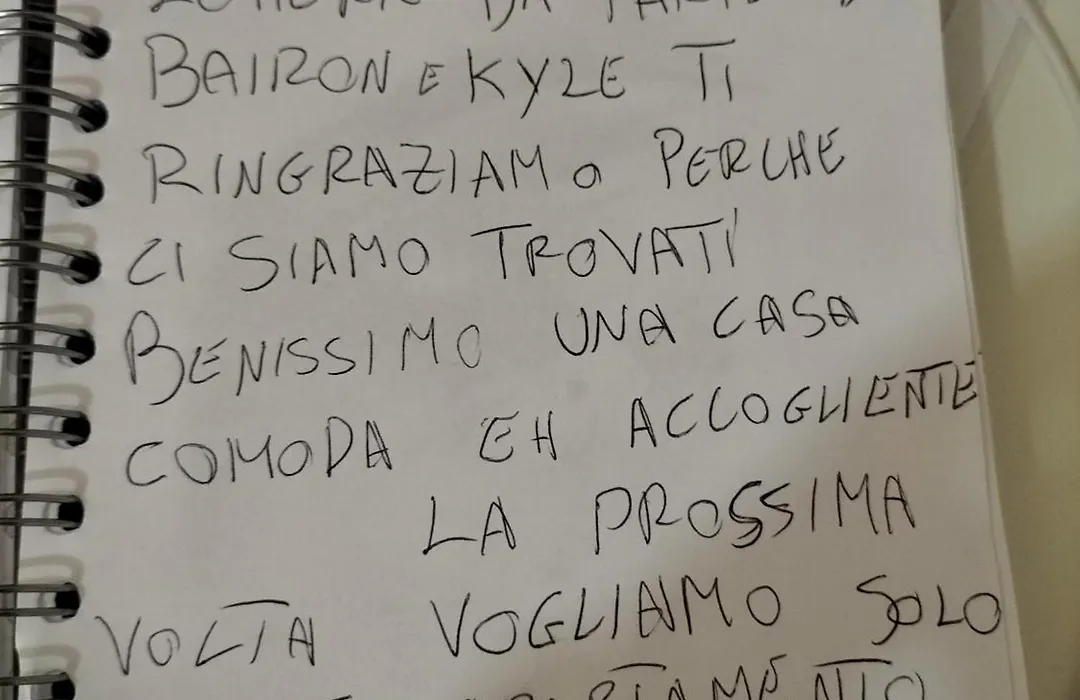 BAIRON E KYLE TI
RINGRAZIAMO PERCHE
CI SIAMO TROVATI
BENISSIMO UNA CASA
COMODA EH ACCOGLIENTE
LA PROSSIMA
VOLTA VOGLIAMO SOLO